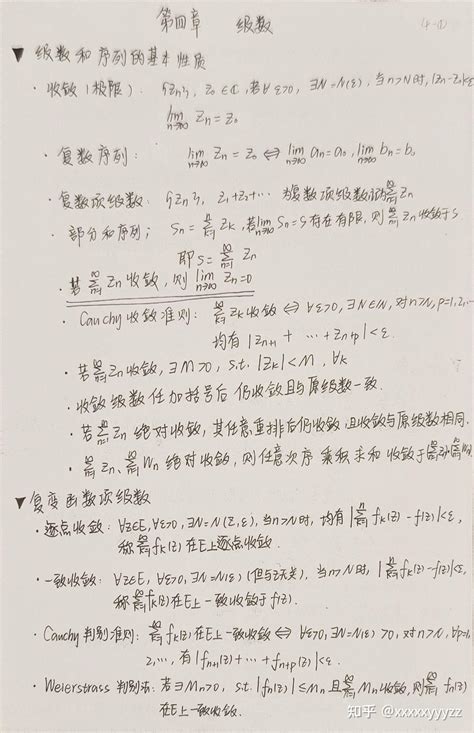 第四章 级数
4-①
▼ 级数和序列的基本性质
· 收敛(极限): {Zn}, Z₀∈ℂ, 若∀ε>0, ∃N=N(ε), 当n>N时, |Zn-Z₀|<ε
lim_{n→∞} Zn=Z₀
· 复数序列: lim_{n→∞} Zn=Z₀ ⇔ lim_{n→∞} an=a₀, lim_{n→∞} bn=b₀
· 复数项级数: {Zn}, Z₁+Z₂+… 为复数项级数, 记为∑_{n=1}^∞ Zn
· 部分和序列; Sn=∑_{k=1}^n Zk, 若lim_{n→∞} Sn=S存在有限, 则∑_{n=1}^∞ Zn收敛于S
即S=∑_{n=1}^∞ Zn
· 若∑_{n=1}^∞ Zn收敛, 则lim_{n→∞} Zn=0
· Cauchy收敛准则: ∑_{k=1}^∞ Zk收敛 ⇔ ∀ε>0, ∃N∈ℕ, 对n>N, p=1,2,…
均有|Zn+1 + … +Zn+p|<ε.
· 若∑_{n=1}^∞ Zn收敛, ∃M>0, s.t. |Zk|<M, ∀k
· 收敛级数任加括号后仍收敛且与原级数一致.
· 若∑_{n=1}^∞ Zn绝对收敛, 其任意重排后仍收敛且收敛与原级数相同.
· ∑_{n=1}^∞ Zn、∑_{n=1}^∞ Wn绝对收敛, 则任意次序乘积求和收敛于
▼ 复变函数项级数
· 逐点收敛: ∀Z∈E, ∀ε>0, ∃N=N(Z,ε), 当n>N时, 均有|∑_{k=1}^n fk(Z) - f(Z)|<ε,
称∑_{k=1}^∞ fk(Z)在E上逐点收敛.
· 一致收敛: ∀Z∈E, ∀ε>0, ∃N=N(ε) (但与Z无关), 当n>N时, |∑_{k=1}^n fk(Z)-f(Z)|<ε,
称∑_{k=1}^∞ fk(Z)在E上一致收敛于f(Z).
· Cauchy判别准则: ∑_{k=1}^∞ fk(Z)在E上一致收敛 ⇔ ∀ε>0, ∃N=N(ε)>0, 对n>N, ∀p=1,
2,…, 有|fn+1(Z)+…+fn+p(Z)|<ε.
· Weierstrass判别法: 若∃Mn>0, s.t. |fn(Z)|≤Mn且∑_{n=1}^∞ Mn收敛, 则∑_{n=1}^∞ fn(Z)
在E上一致收敛.
知乎 @xxxxxyyyzz